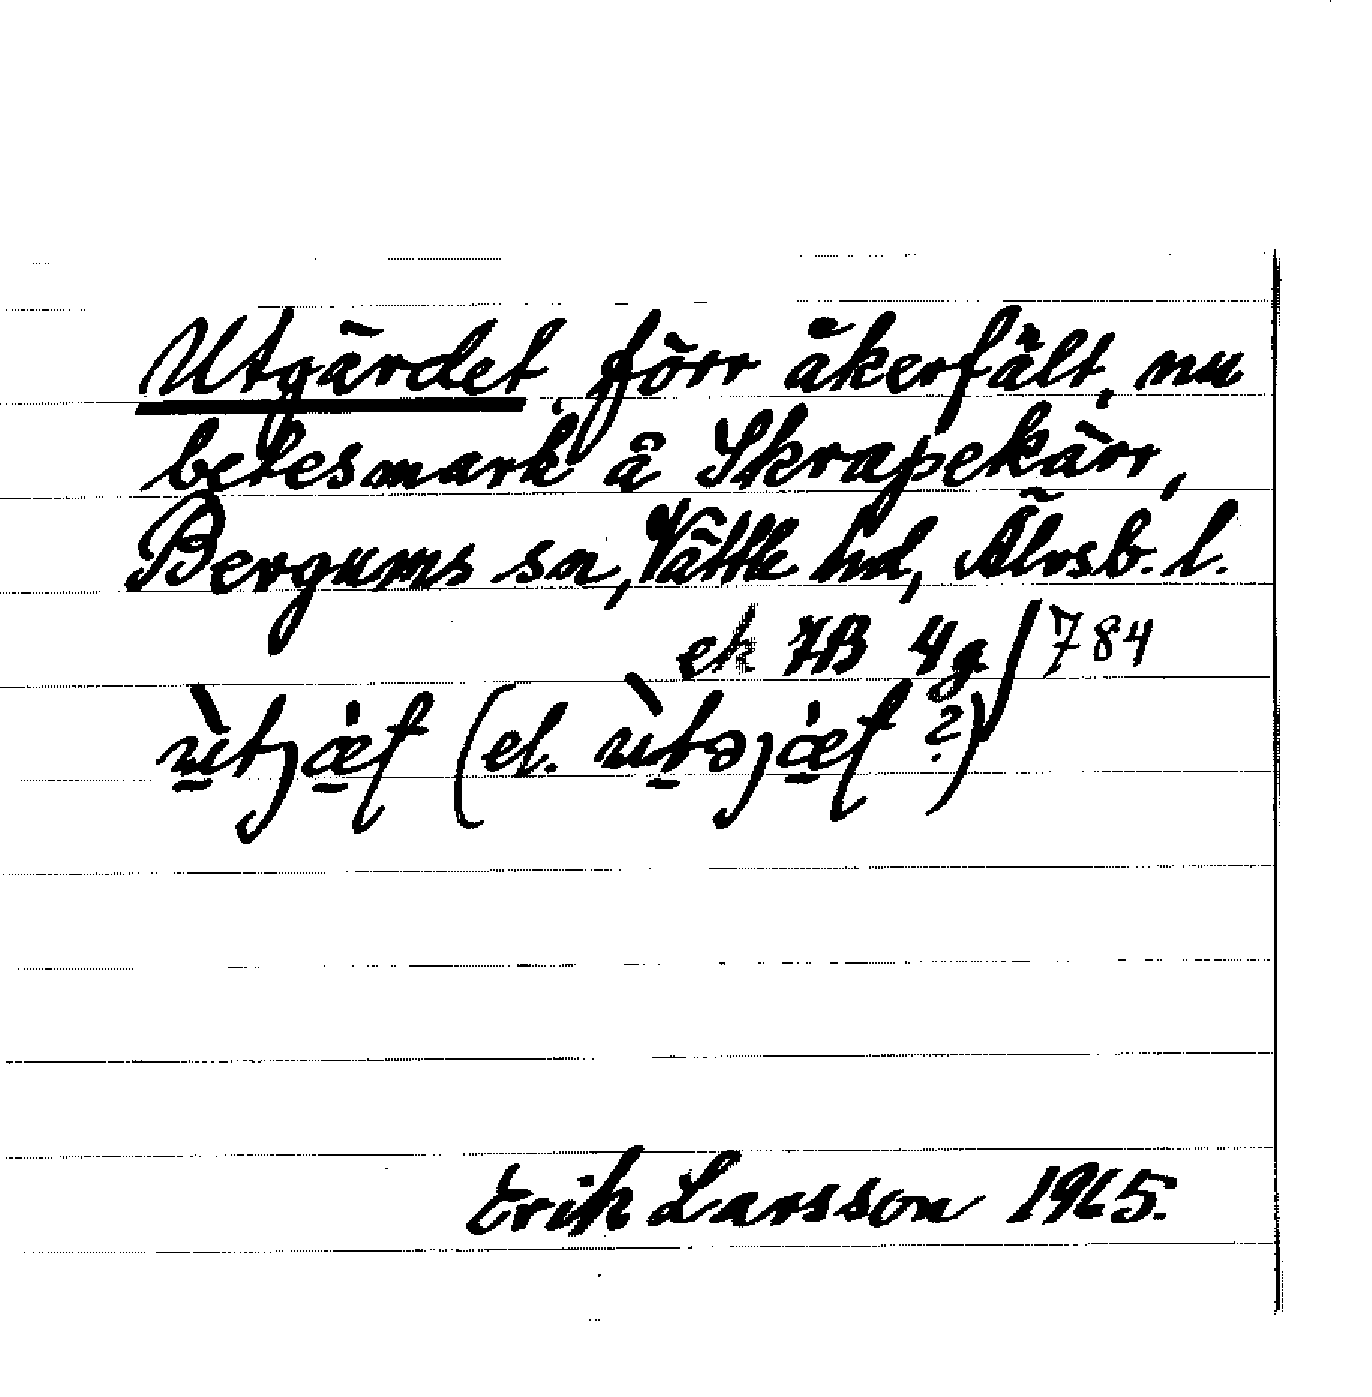 Utgärdet, förr åkerfält, nu
betesmark å Skrapekärr,
Bergums sn, Vättle hd, Älvsb. l.
ek 7B 4g/784
ùtjæ̀ʈ (el. ùtəjæ̀ʈ ?)
Erik Larsson 1965.